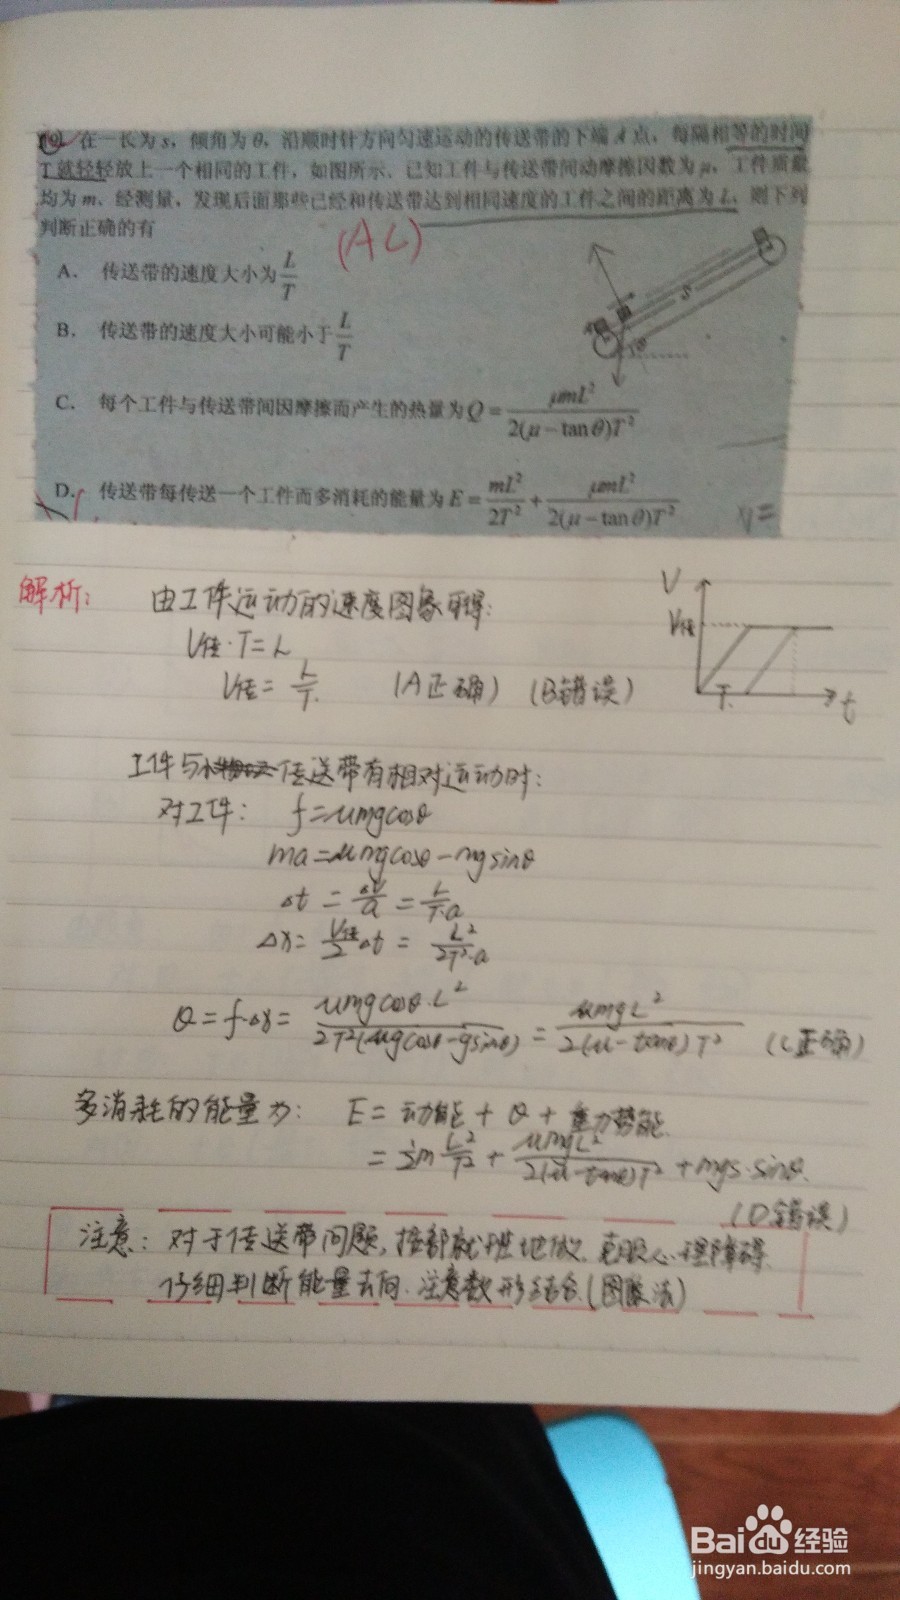 19. 在一长为s，倾角为θ，沿顺时针方向匀速运动的传送带的下端A点，每隔相等的时间
T就轻轻放上一个相同的工件，如图所示．已知工件与传送带间动摩擦因数为μ，工件质量
均为m．经测量，发现后面那些已经和传送带达到相同速度的工件之间的距离为L，则下列
判断正确的有
(AC)
A． 传送带的速度大小为L/T
B． 传送带的速度大小可能小于L/T
C． 每个工件与传送带间因摩擦而产生的热量为Q=μmL²/2(μ−tanθ)T²
D． 传送带每传送一个工件而多消耗的能量为E=mL²/2T²+μmL²/2(μ−tanθ)T²
S
θ
解析：
由工件运动的速度图象可得：
V传·T=L
V传=L/T. (A正确) (B错误)
V
V传
T
t
工件与传送带有相对运动时：
对工件： f=μmgcosθ
ma=μmgcosθ−mgsinθ
Δt=Δv/a=L/T·a
Δx=V传/2 Δt=L²/2T²·a
Q=f·Δx=μmgcosθ·L²/2T²(μgcosθ−gsinθ)=μmgL²/2(μ−tanθ)T² (C正确)
多消耗的能量为： E=动能+Q+重力势能.
=½m L²/T²+μmgL²/2(μ−tanθ)T²+mgs·sinθ.
(D错误)
注意：对于传送带问题，按部就班地做，克服心理障碍.
仔细判断能量去向．注意数形结合.(图象法)
Baidu经验
jingyan.baidu.com